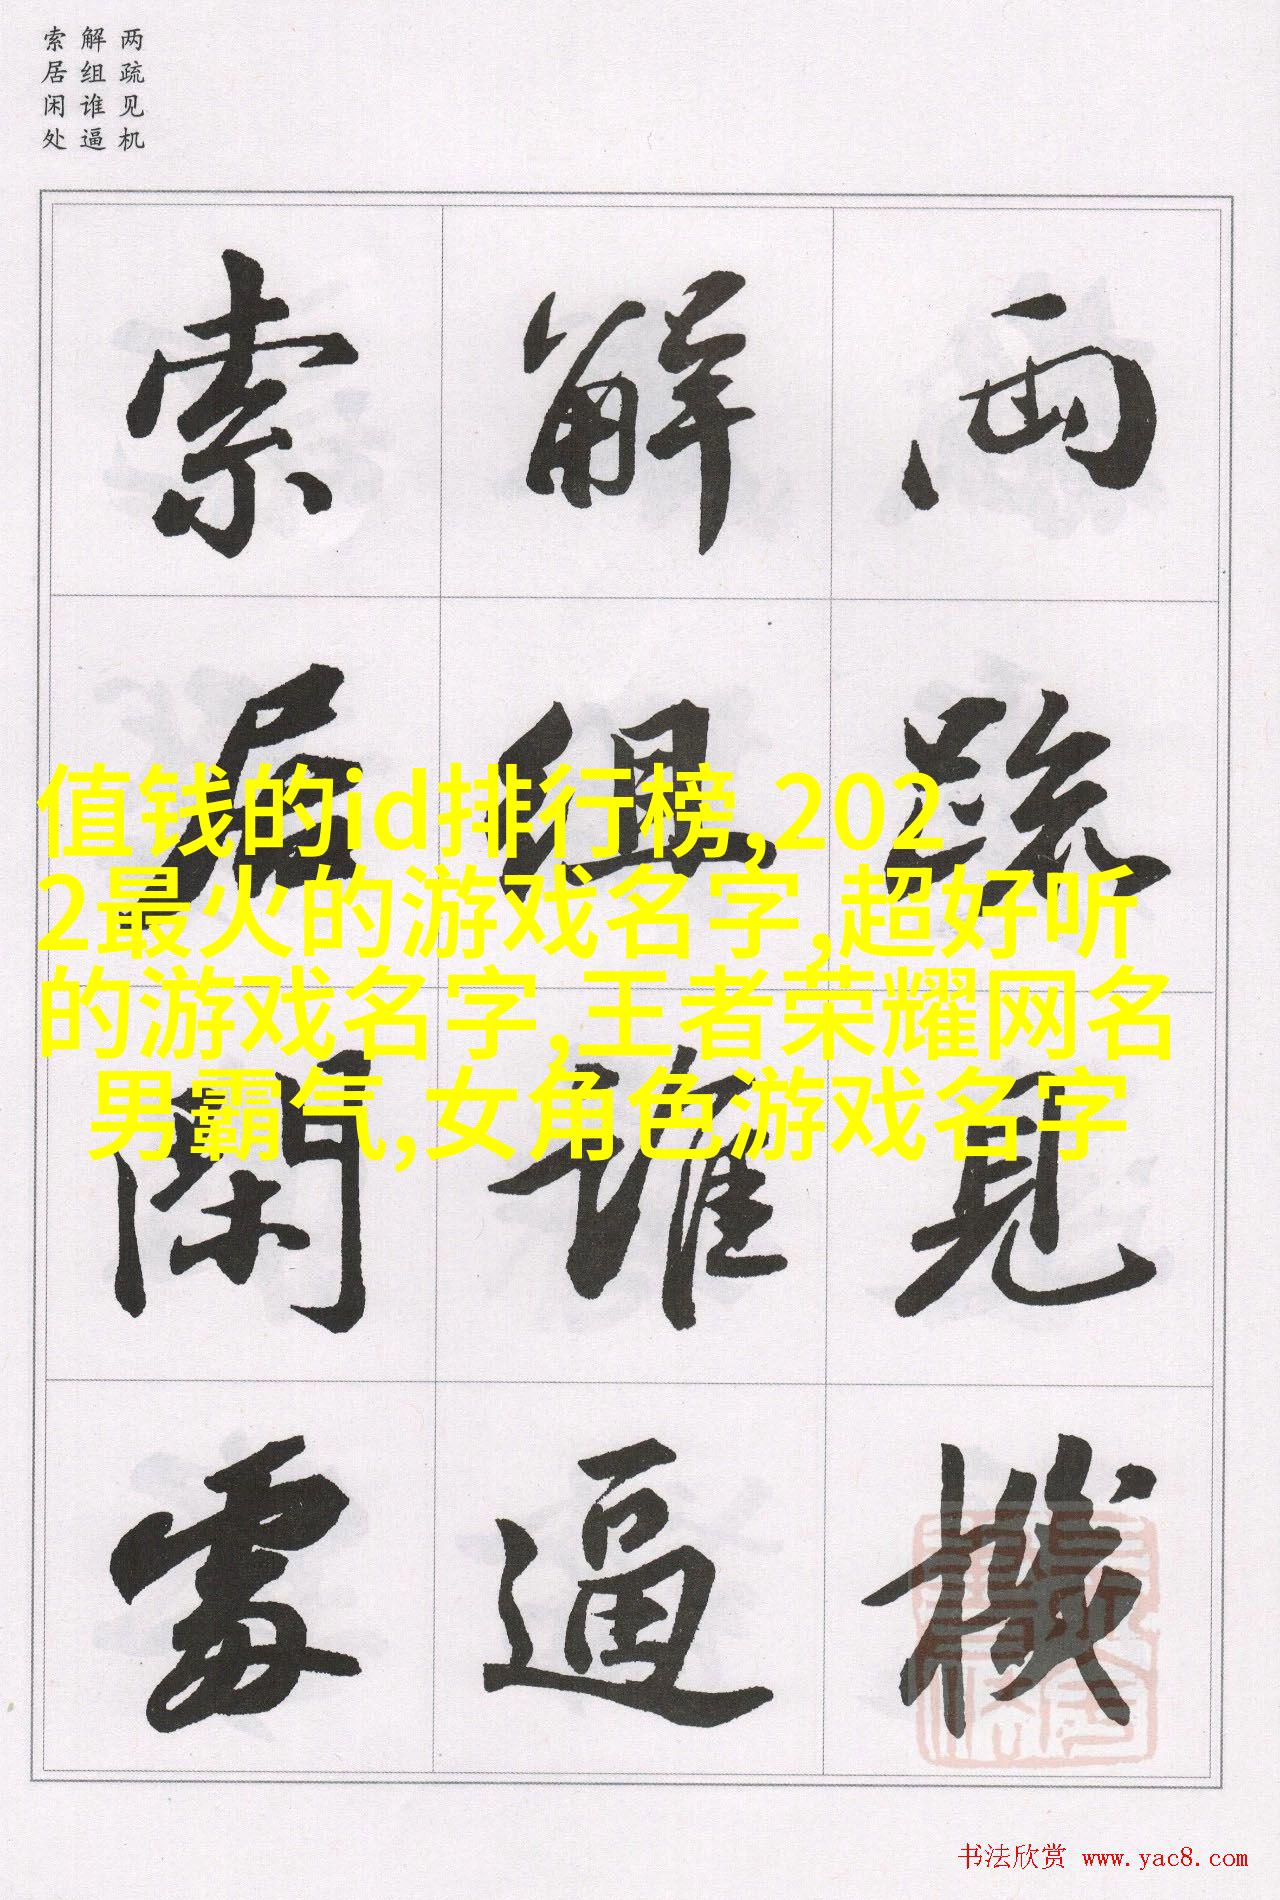 两疏见机
解组谁逼
索居闲处
兩疏見機
解組誰逼
索居閑處
值钱的id排行榜,202
2最火的游戏名字,超好听
的游戏名字,王者荣耀网名
男霸气,女角色游戏名字
书法欣赏 www.yac8.com